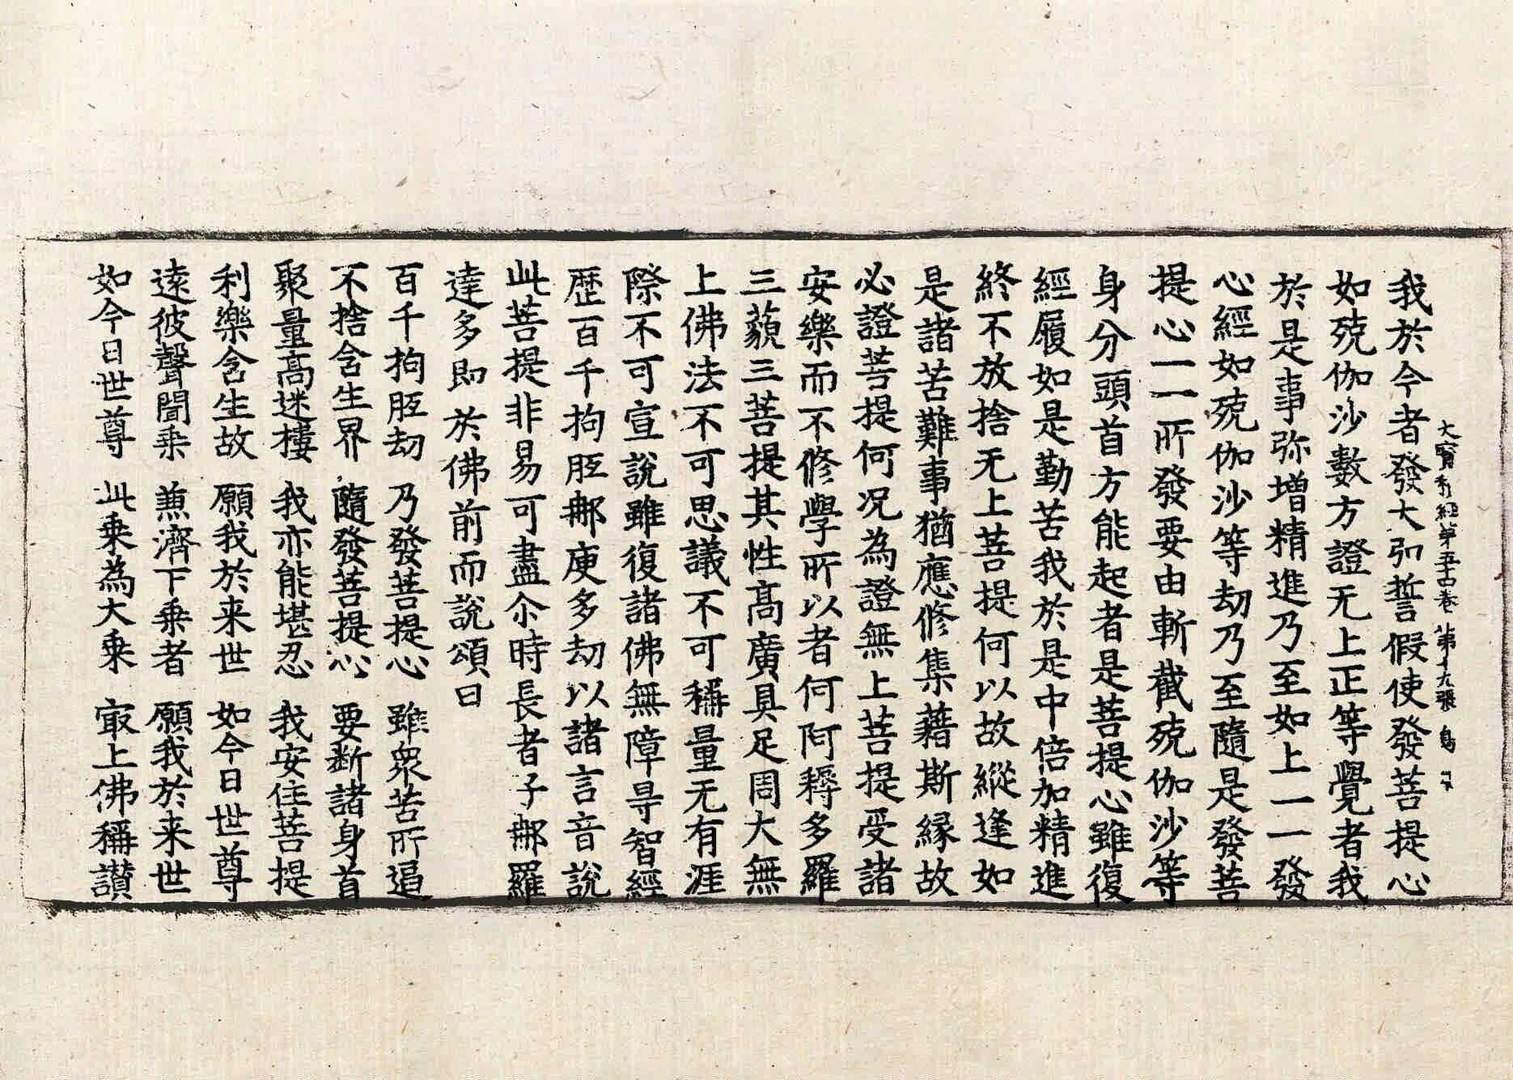 我於今者發大弘誓假使發菩提心
大寶積經第五十四卷 第十九張 鳥
如殑伽沙數方證无上正等覺者我
於是事弥增精進乃至如上一一發
心經如殑伽沙等劫乃至隨是發菩
提心一一所發要由斬截殑伽沙等
身分頭首方能起者是菩提心雖復
經履如是勤苦我於是中倍加精進
終不放捨无上菩提何以故縱逢如
是諸苦難事猶應修集藉斯緣故
必證菩提何况為證無上菩提受諸
安樂而不修學所以者何阿耨多羅
三藐三菩提其性高廣具足周大無
上佛法不可思議不可稱量无有涯
際不可宣說雖復諸佛無障㝵智經
歷百千拘胝那庾多劫以諸言音說
此菩提非易可盡尒時長者子那羅
達多即於佛前而說頌曰
百千拘胝劫 乃發菩提心 雖衆苦所逼
不捨含生界 隨發菩提心 要斷諸身首
聚量高迷樓 我亦能堪忍 我安住菩提
利樂含生故 願我於来世 如今日世尊
遠彼聲聞乘 兼濟下乘者 願我於来世
如今日世尊 此乘為大乘 㝡上佛稱讃